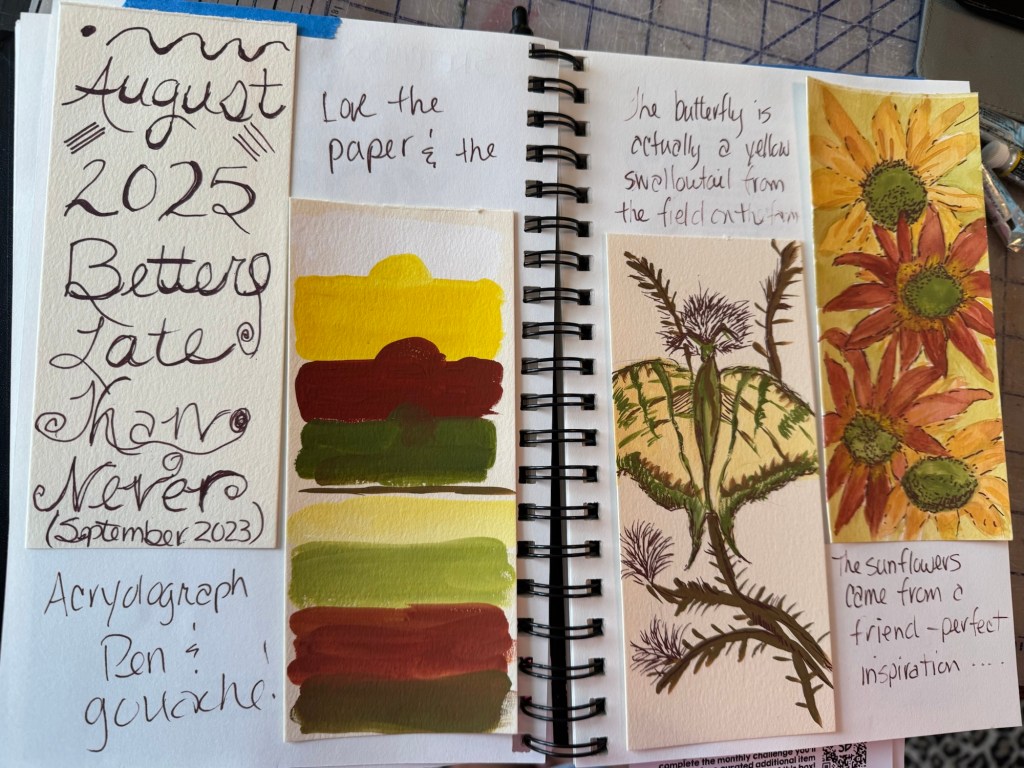 August
2025
Better
Late
Than
Never
(September 2023)
Acrydograph
Pen &
gouache!
Love the
paper & the
The butterfly is
actually a yellow
swallowtail from
the field on the farm
The sunflowers
came from a
friend - perfect
inspiration ....
complete the monthly challenge you'll
curated additional item
this box!